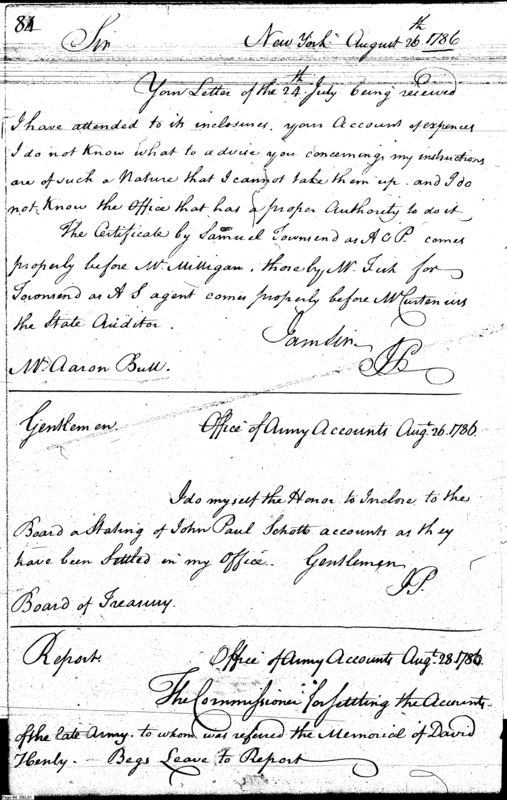 84
Sir New York August 26th 1786
Your Letter of the 24th July being received
I have attended to its enclosures, your Account of expences
I do not Know what to advise you concerning, my instructions
are of such a Nature that I cannot take them up. and I do
not Know the Office that has a proper Authority to do it
The Certificate by Samuel Townsend as A C P. comes
properly before Mr. Milligan, those by Mr. Fish for
Townsend as A S agent comes properly before Mr Curtenius
the State Auditor.
I am Sir
Mr. Aaron Bull. JP
Gentlemen Office of Army Accounts Augt. 26. 1786.
I do myself the Honor to Inclose to the
Board a Stating of John Paul Schott accounts as they
have been Settled in my Office. Gentlemen
JP.
Board of Treasury.
Report. Office of Army Accounts Augt. 28. 1786.
The Commissioner for settling the Accounts
of the late Army. to whom was refered the Memorial of David
Henly. Begs Leave to Report